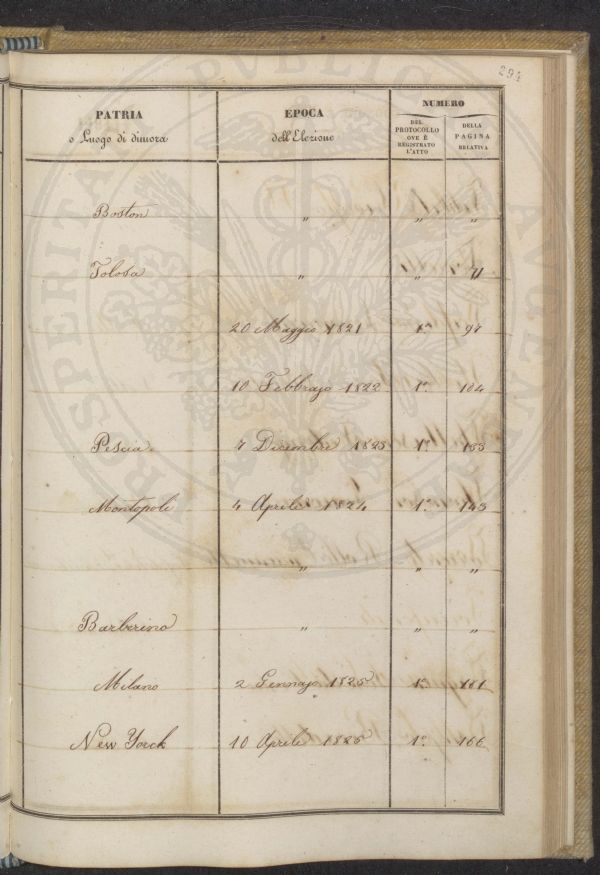 294
PATRIA
o Luogo di dimora
EPOCA
dell'Elezione
NUMERO
DEL
PROTOCOLLO
OVE È
REGISTRATO
L'ATTO
DELLA
PAGINA
RELATIVA
Boston " " "
Tolosa " " 71
20 Maggio 1821 1° 97
10 Febbrajo 1822 1° 104
Pescia 7 Dicembre 1823 1° 133
Montopoli 4 Aprile 1824 1° 143
" " "
Barberino " " "
Milano 2 Gennajo 1825 1° 161
New Yorck 10 Aprile 1825 1° 166
PROSPERITAS PUBLICA AUGENDAE